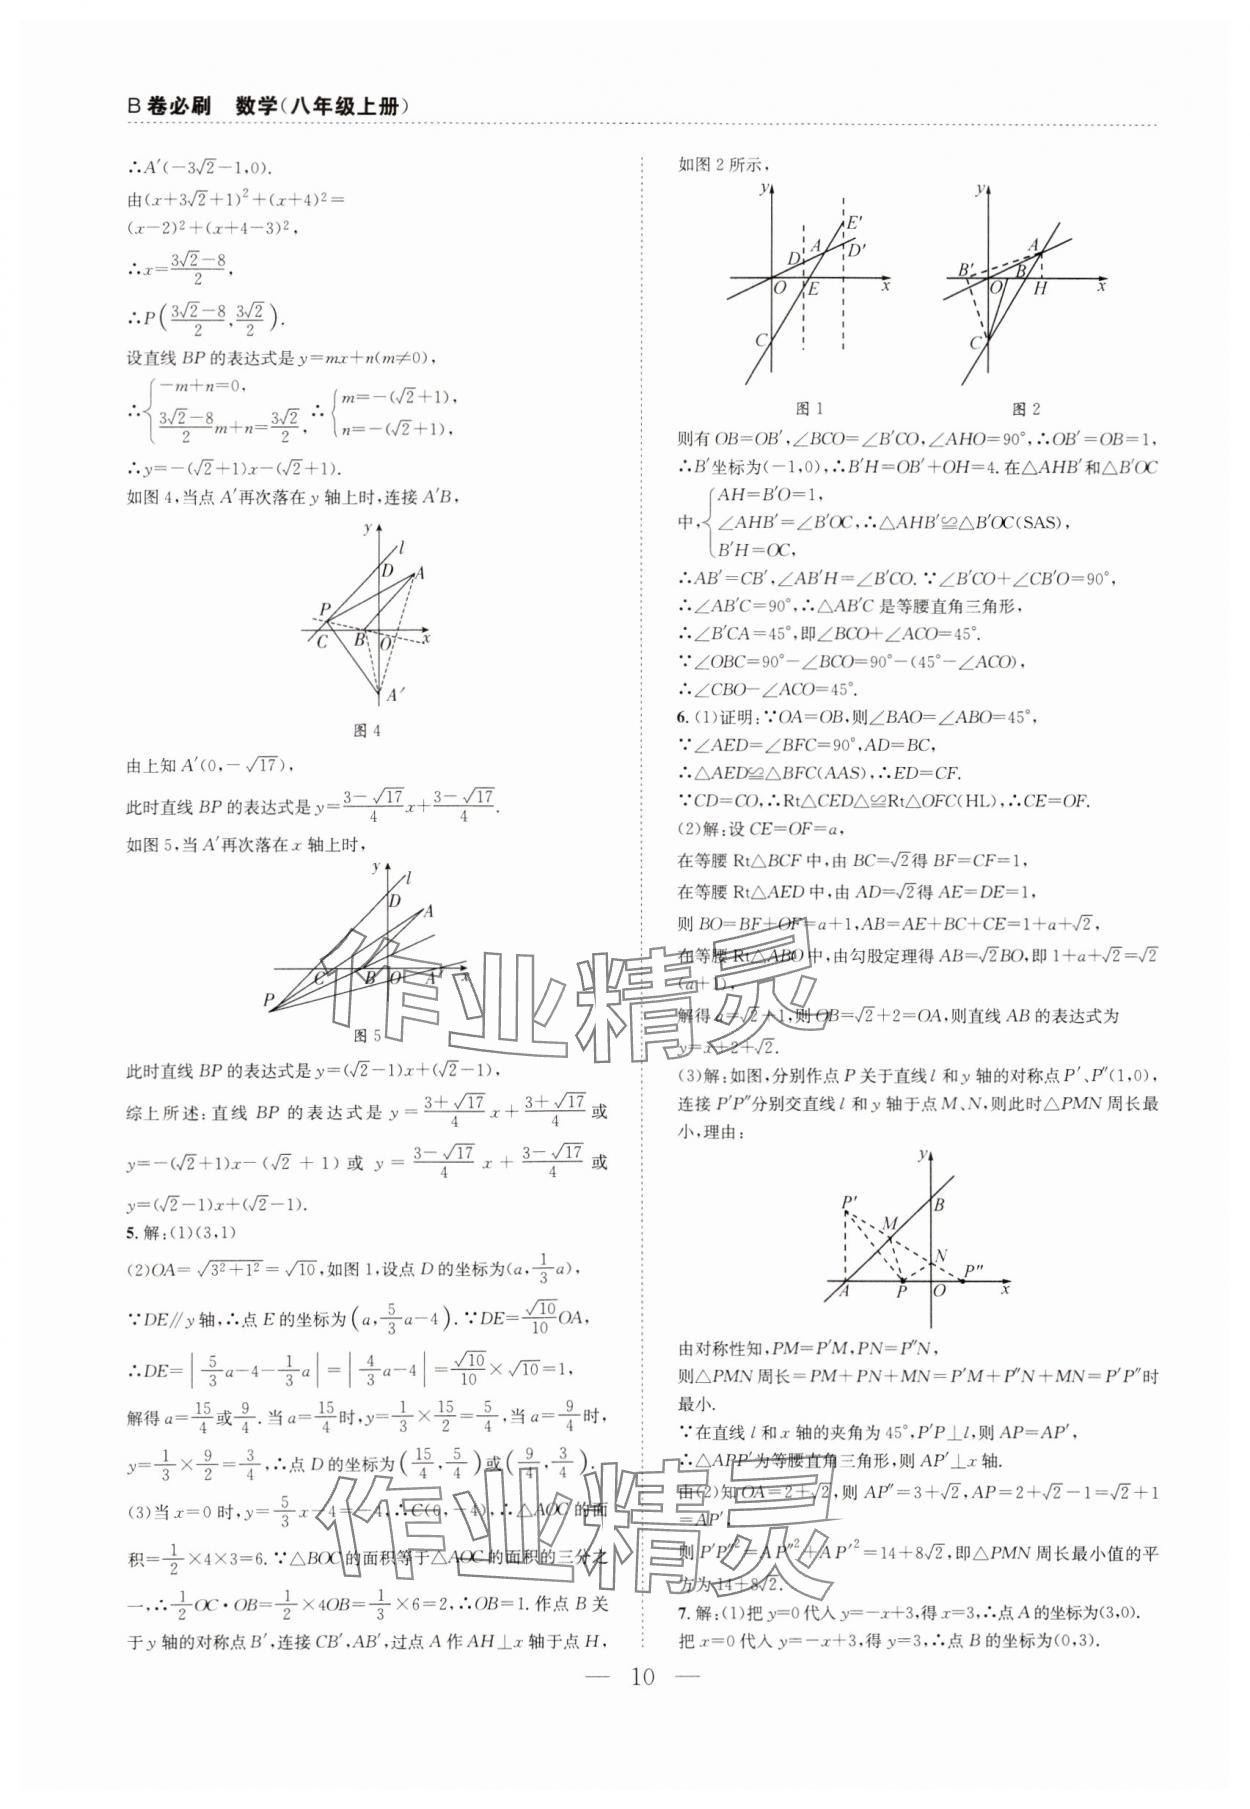 B 卷必刷　数学(八年级上册)
∴A′(−3√2−1,0).
由(x+3√2+1)²+(x+4)²=
(x−2)²+(x+4−3)²,
∴x=(3√2−8)/2,
∴P((3√2−8)/2,3√2/2).
设直线 BP 的表达式是 y=mx+n(m≠0),
∴{−m+n=0, (3√2−8)/2 m+n=3√2/2, ∴{m=−(√2+1), n=−(√2+1),
∴y=−(√2+1)x−(√2+1).
如图 4,当点 A′再次落在 y 轴上时,连接 A′B,
y
l
D
A
P
C
B
O
x
A′
图 4
由上知 A′(0,−√17),
此时直线 BP 的表达式是 y=(3−√17)/4 x+(3−√17)/4.
如图 5,当 A′再次落在 x 轴上时,
y
l
D
A
C
B
O
A′
x
P
图 5
此时直线 BP 的表达式是 y=(√2−1)x+(√2−1),
综上所述:直线 BP 的表达式是 y=(3+√17)/4 x+(3+√17)/4 或
y=−(√2+1)x−(√2+1) 或 y=(3−√17)/4 x+(3−√17)/4 或
y=(√2−1)x+(√2−1).
5.解:(1)(3,1)
(2)OA=√(3²+1²)=√10,如图 1,设点 D 的坐标为(a,1/3 a),
∵DE∥y 轴,∴点 E 的坐标为(a,5/3 a−4).∵DE=√10/10 OA,
∴DE=|5/3 a−4−1/3 a|=|4/3 a−4|=√10/10×√10=1,
解得 a=15/4 或 9/4.当 a=15/4 时,y=1/3×15/2=5/4,当 a=9/4 时,
y=1/3×9/2=3/4,∴点 D 的坐标为(15/4,5/4)或(9/4,3/4).
(3)当 x=0 时,y=5/3 x−4=−4,∴C(0,−4),∴△AOC 的面
积=1/2×4×3=6.∵△BOC 的面积等于△AOC 的面积的三分之
一,∴1/2 OC·OB=1/2×4OB=1/3×6=2,∴OB=1.作点 B 关
于 y 轴的对称点 B′,连接 CB′,AB′,过点 A 作 AH⊥x 轴于点 H,
如图 2 所示,
y
E′
A
D
D′
O
E
x
C
图 1
y
A
B′
B
O
H
x
C
图 2
则有 OB=OB′,∠BCO=∠B′CO,∠AHO=90°,∴OB′=OB=1,
∴B′坐标为(−1,0),∴B′H=OB′+OH=4.在△AHB′和△B′OC
中,{AH=B′O=1, ∠AHB′=∠B′OC, B′H=OC, ∴△AHB′≌△B′OC(SAS),
∴AB′=CB′,∠AB′H=∠B′CO.∵∠B′CO+∠CB′O=90°,
∴∠AB′C=90°,∴△AB′C 是等腰直角三角形,
∴∠B′CA=45°,即∠BCO+∠ACO=45°.
∵∠OBC=90°−∠BCO=90°−(45°−∠ACO),
∴∠CBO−∠ACO=45°.
6.(1)证明:∵OA=OB,则∠BAO=∠ABO=45°,
∵∠AED=∠BFC=90°,AD=BC,
∴△AED≌△BFC(AAS),∴ED=CF.
∵CD=CO,∴Rt△CED△≌Rt△OFC(HL),∴CE=OF.
(2)解:设 CE=OF=a,
在等腰 Rt△BCF 中,由 BC=√2得 BF=CF=1,
在等腰 Rt△AED 中,由 AD=√2得 AE=DE=1,
则 BO=BF+OF=a+1,AB=AE+BC+CE=1+a+√2,
在等腰 Rt△ABO 中,由勾股定理得 AB=√2BO,即 1+a+√2=√2
(a+1),
解得 a=√2+1,则 OB=√2+2=OA,则直线 AB 的表达式为
y=x+2+√2.
(3)解:如图,分别作点 P 关于直线 l 和 y 轴的对称点 P′、P″(1,0),
连接 P′P″分别交直线 l 和 y 轴于点 M、N,则此时△PMN 周长最
小,理由:
y
P′
B
M
N
P″
A
P
O
x
由对称性知,PM=P′M,PN=P″N,
则△PMN 周长=PM+PN+MN=P′M+P″N+MN=P′P″时
最小.
∵在直线 l 和 x 轴的夹角为 45°,P′P⊥l,则 AP=AP′,
∴△APP′为等腰直角三角形,则 AP′⊥x 轴.
由(2)知 OA=2+√2,则 AP″=3+√2,AP=2+√2−1=√2+1
=AP′,
则 P′P″²=AP″²+AP′²=14+8√2,即△PMN 周长最小值的平
方为 14+8√2.
7.解:(1)把 y=0 代入 y=−x+3,得 x=3,∴点 A 的坐标为(3,0).
把 x=0 代入 y=−x+3,得 y=3,∴点 B 的坐标为(0,3).
作业精灵
作业精灵
— 10 —